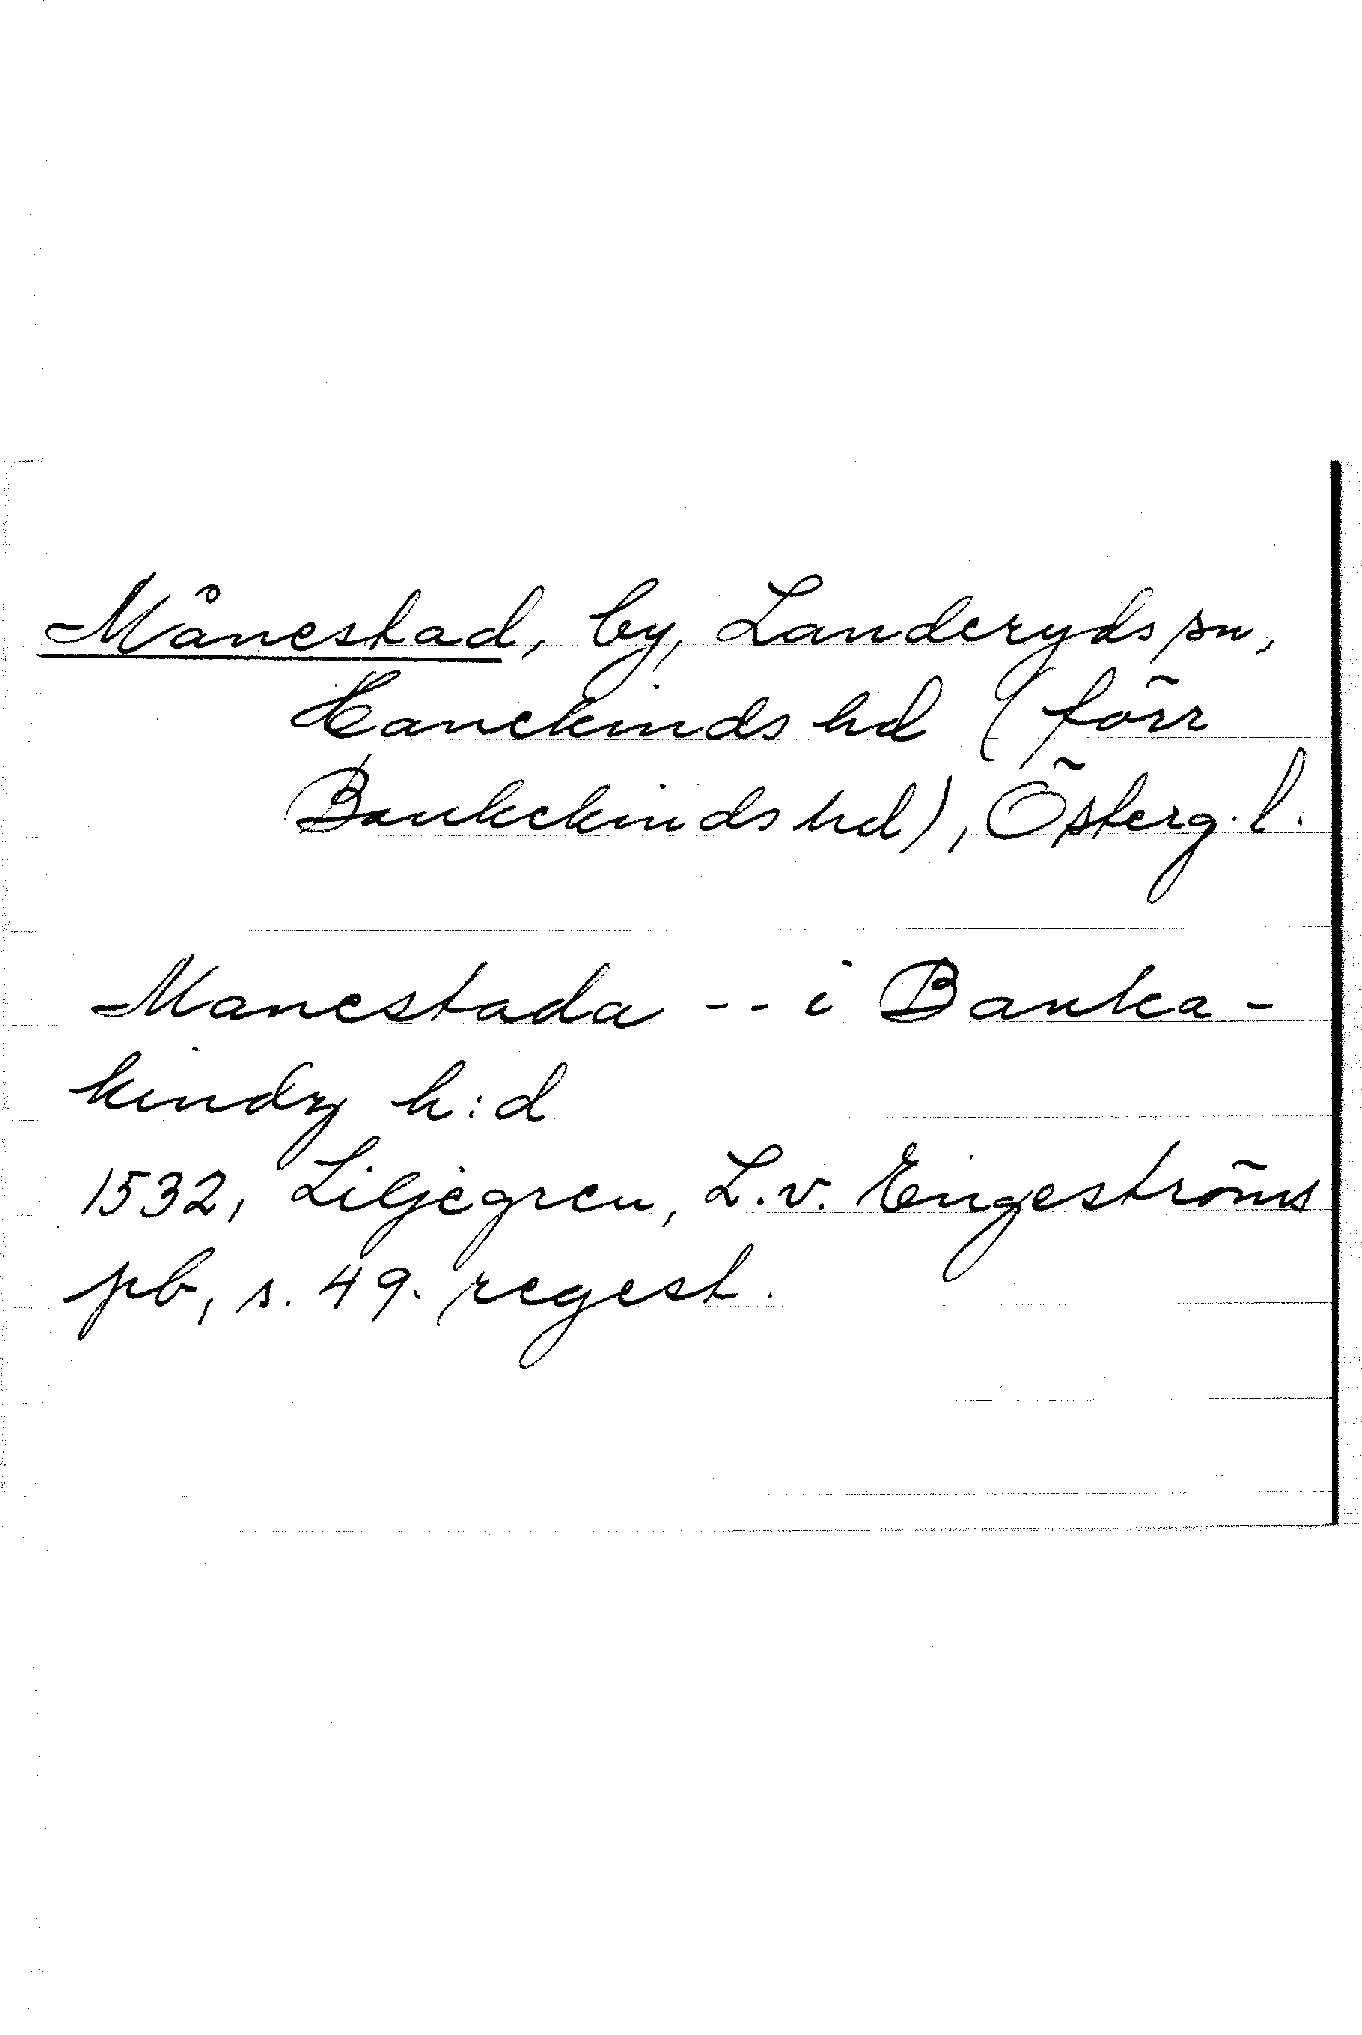 Månestad, by, Landeryds sn,
Hanekinds hd (förr
Bankekinds hd), Österg. l.
Manestada -- i Banka-
kindz h:d
1532, Liljegren, L. v. Engeströms
pb, s. 49. regest.